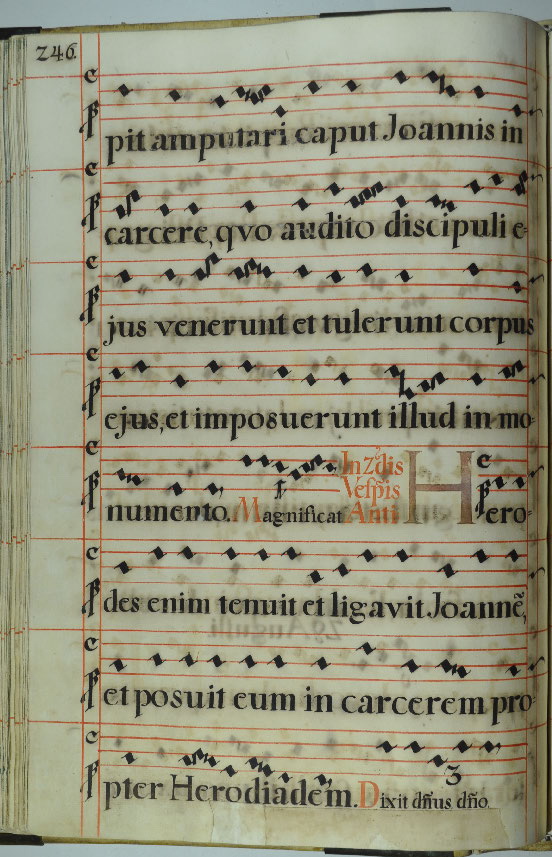 246.
pit amputari caput Joannis in
carcere, qvo audito discipuli e-
jus venerunt et tulerunt corpus
ejus, et imposuerunt illud in mo-
numento. Magnificat In 2dis Vesp̄is Anti Hero-
des enim tenuit et ligavit Joannē,
et posuit eum in carcerem pro-
pter Herodiadem. Dixit dn̄us dn̄o
3